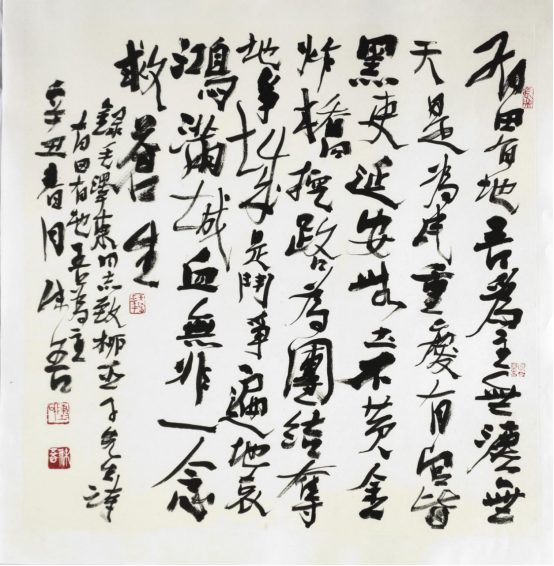 有田有地吾為主無灋無
天是為民重慶有官皆
黑吏延安無土不黄金
炸橋挖路為團結奪
地爭城是鬥爭遍地哀
鴻滿城血無非一念
救苍生
錄毛澤東同志致柳亚子先生詩
有田有地吾為主
辛丑春月朱